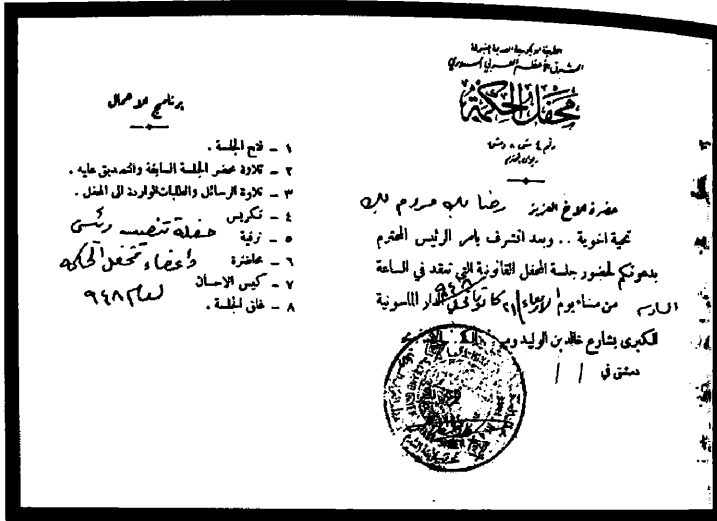 الشرق الأعظم العربي السوري
محفل الحكمة
رقم ٤ ش ٠ دمشق
حضرة الاخ العزيز رضا بك مردم بك
تحية اخوية .. وبعد اتشرف بامر الرئيس المحترم
بدعوتكم لحضور جلسة المحفل القانونية التي تعقد في الساعة
السادسة من مساء يوم الاربعاء ٢١ الدار الماسونية
الكبرى بشارع خالد بن الوليد
دمشق في / /
برنامج الاعمال
١ - فتح الجلسة .
٢ - تلاوة محضر الجلسة السابقة والتصديق عليه .
٣ - تلاوة الرسائل والطلبات الواردة الى المحفل .
٤ - تكريس
٥ - ترقية
٦ - محاضرة
٧ - كيس الاحسان
٨ - غلق الجلسة .
حفلة تنصيب رئيس
واعضاء محفل الحكمة
لعام ٩٤٨